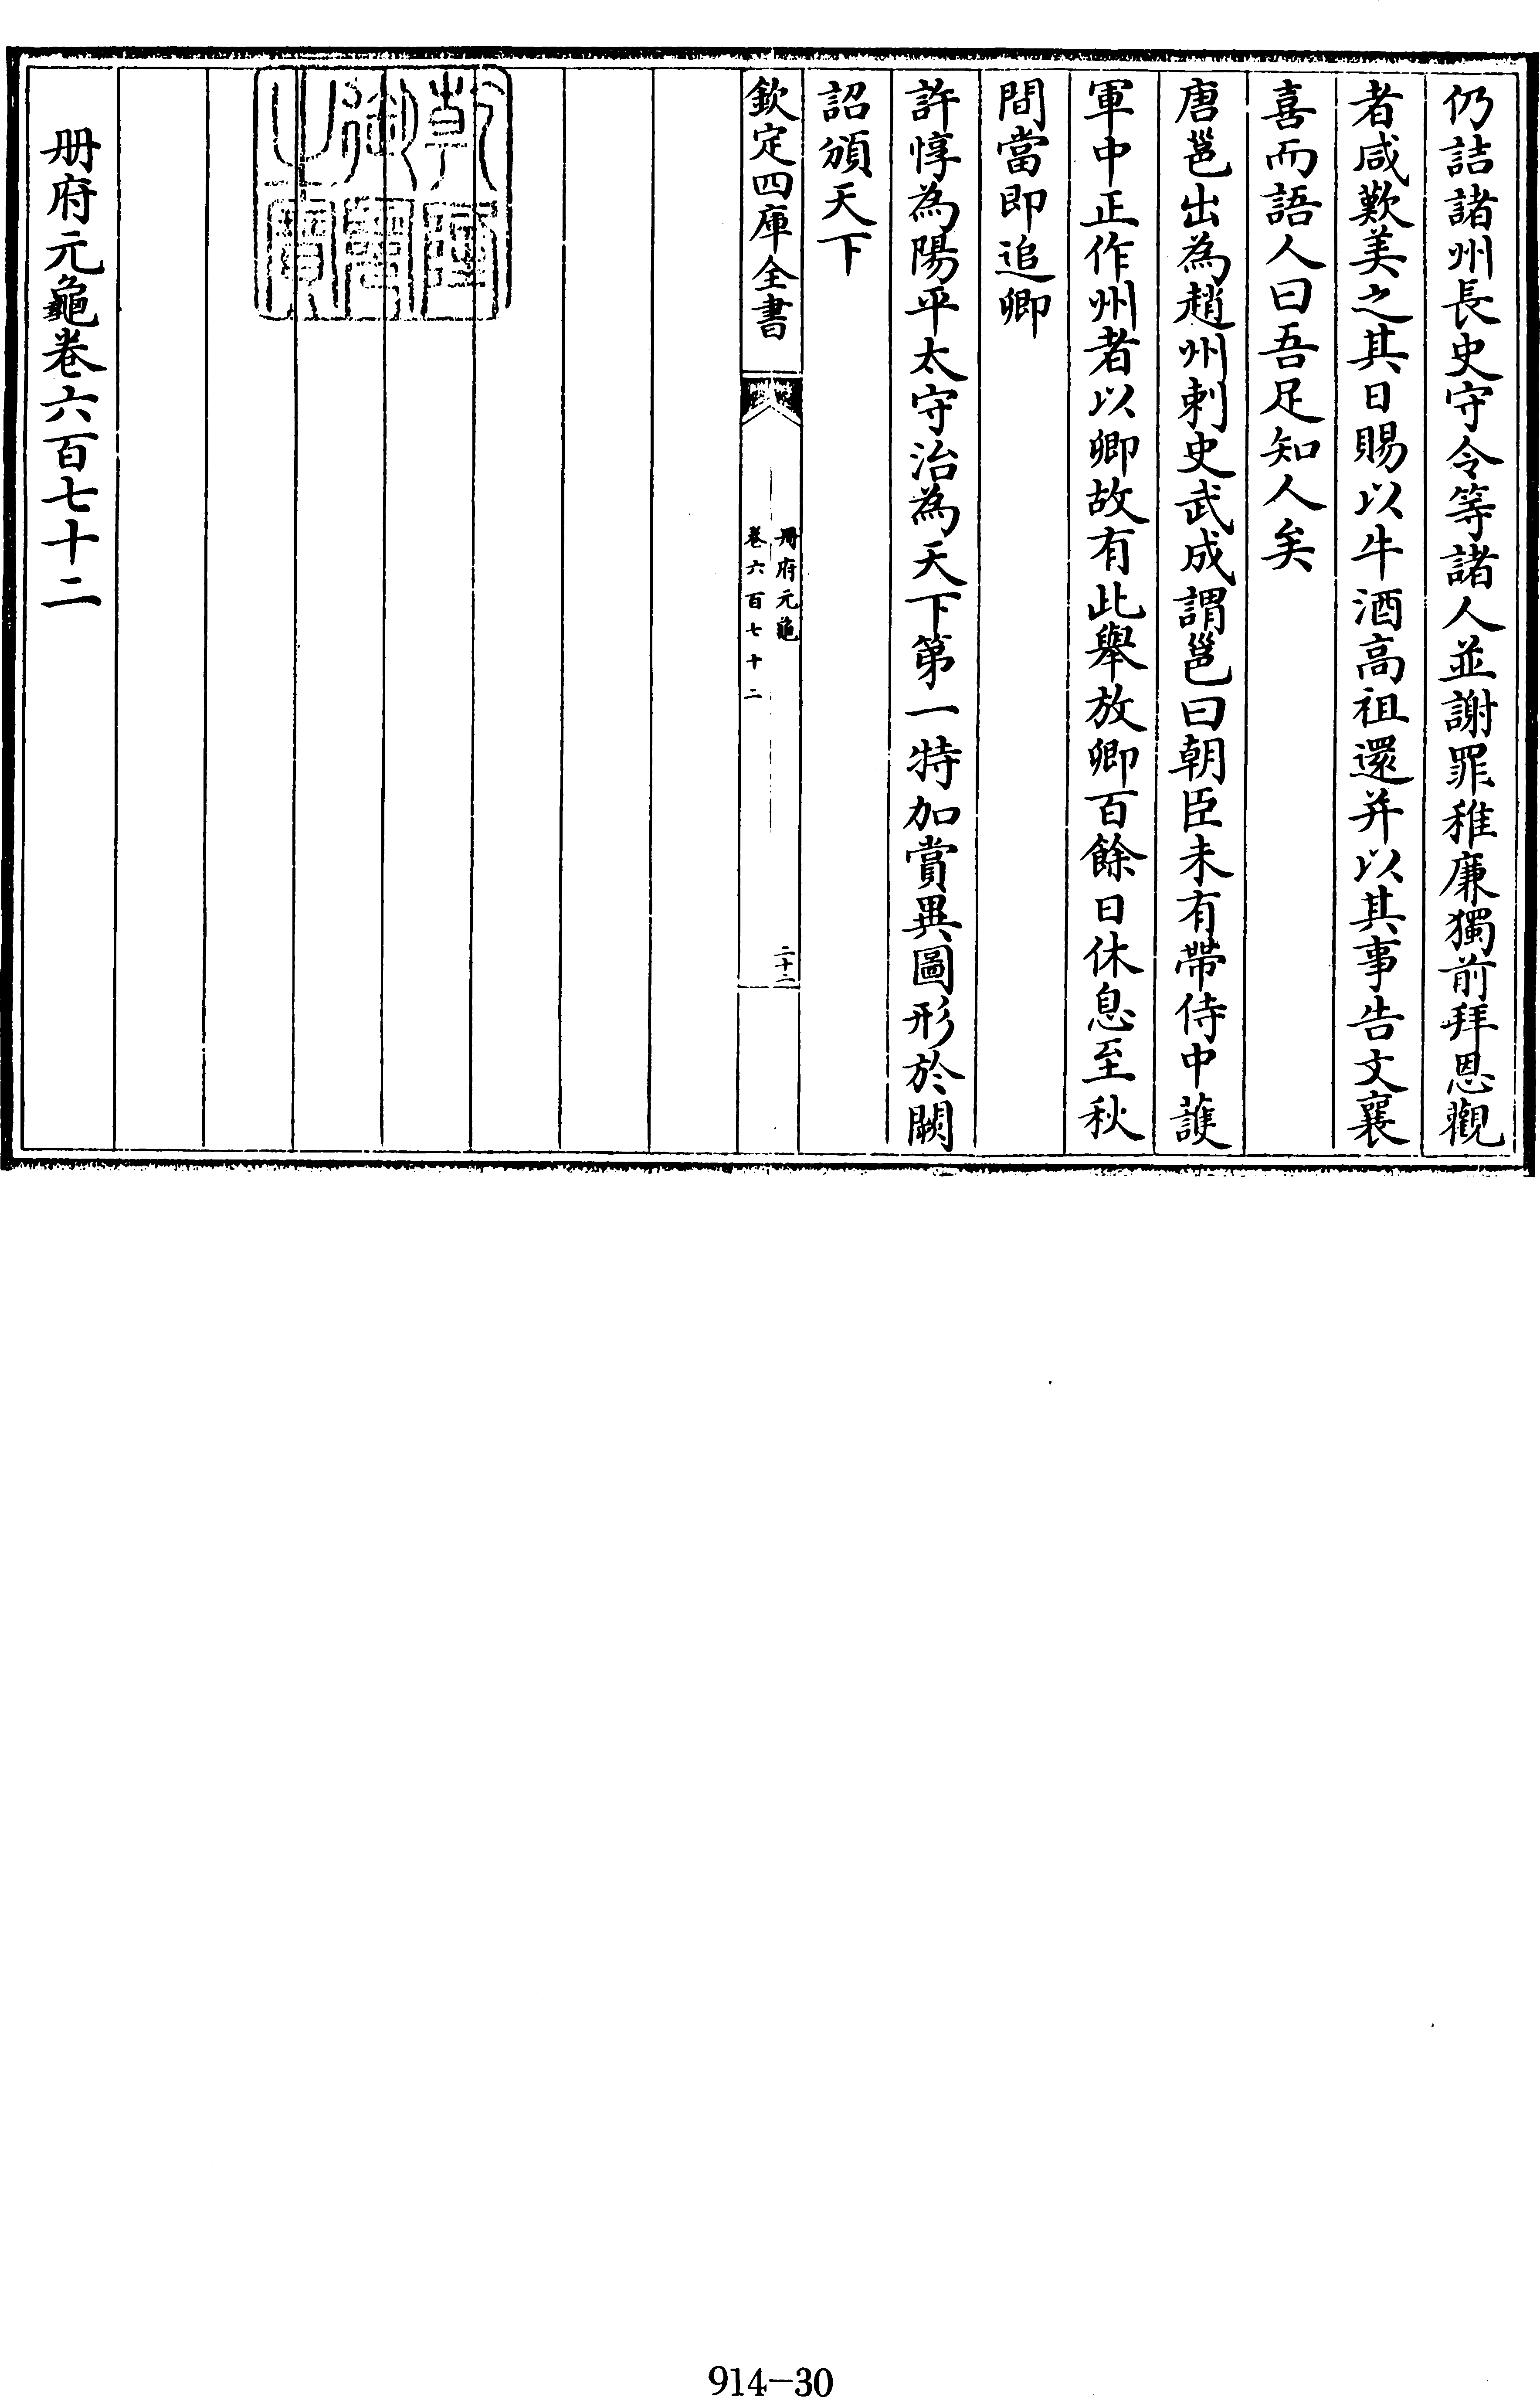 仍詰諸州長史守令等諸人並謝罪稚廉獨前拜恩觀
者咸歎美之其日賜以牛酒高祖還并以其事告文襄
喜而語人曰吾足知人矣
唐邕出為趙州刺史武成謂邕曰朝臣未有帶侍中護
軍中正作州者以卿故有此舉放卿百餘日休息至秋
間當即追卿
許惇為陽平太守治為天下第一特加賞異圖形於闕
詔頒天下
欽定四庫全書
册府元龜
卷六百七十二
二十二
乾隆御覽之寶
册府元龜卷六百七十二
914-30